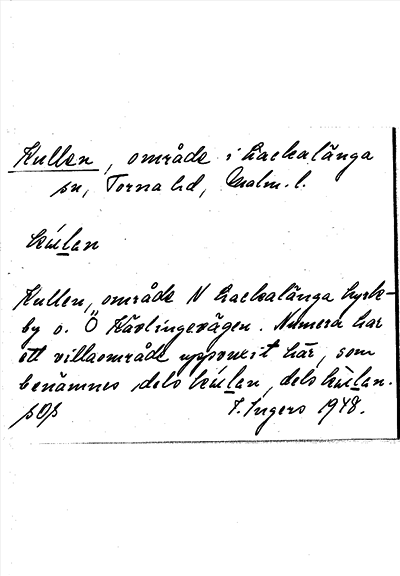 Kullen, område i Lackalänga
sn, Torna hd, Malm. l.
kúlan
Kullen, område N Lackalänga kyrk-
by o. Ö Kävlingevägen. Numera har
ett villaområde uppvuxit här, som
benämnes dels kúlan, dels kùlan.
sOs I. Ingers 1948.